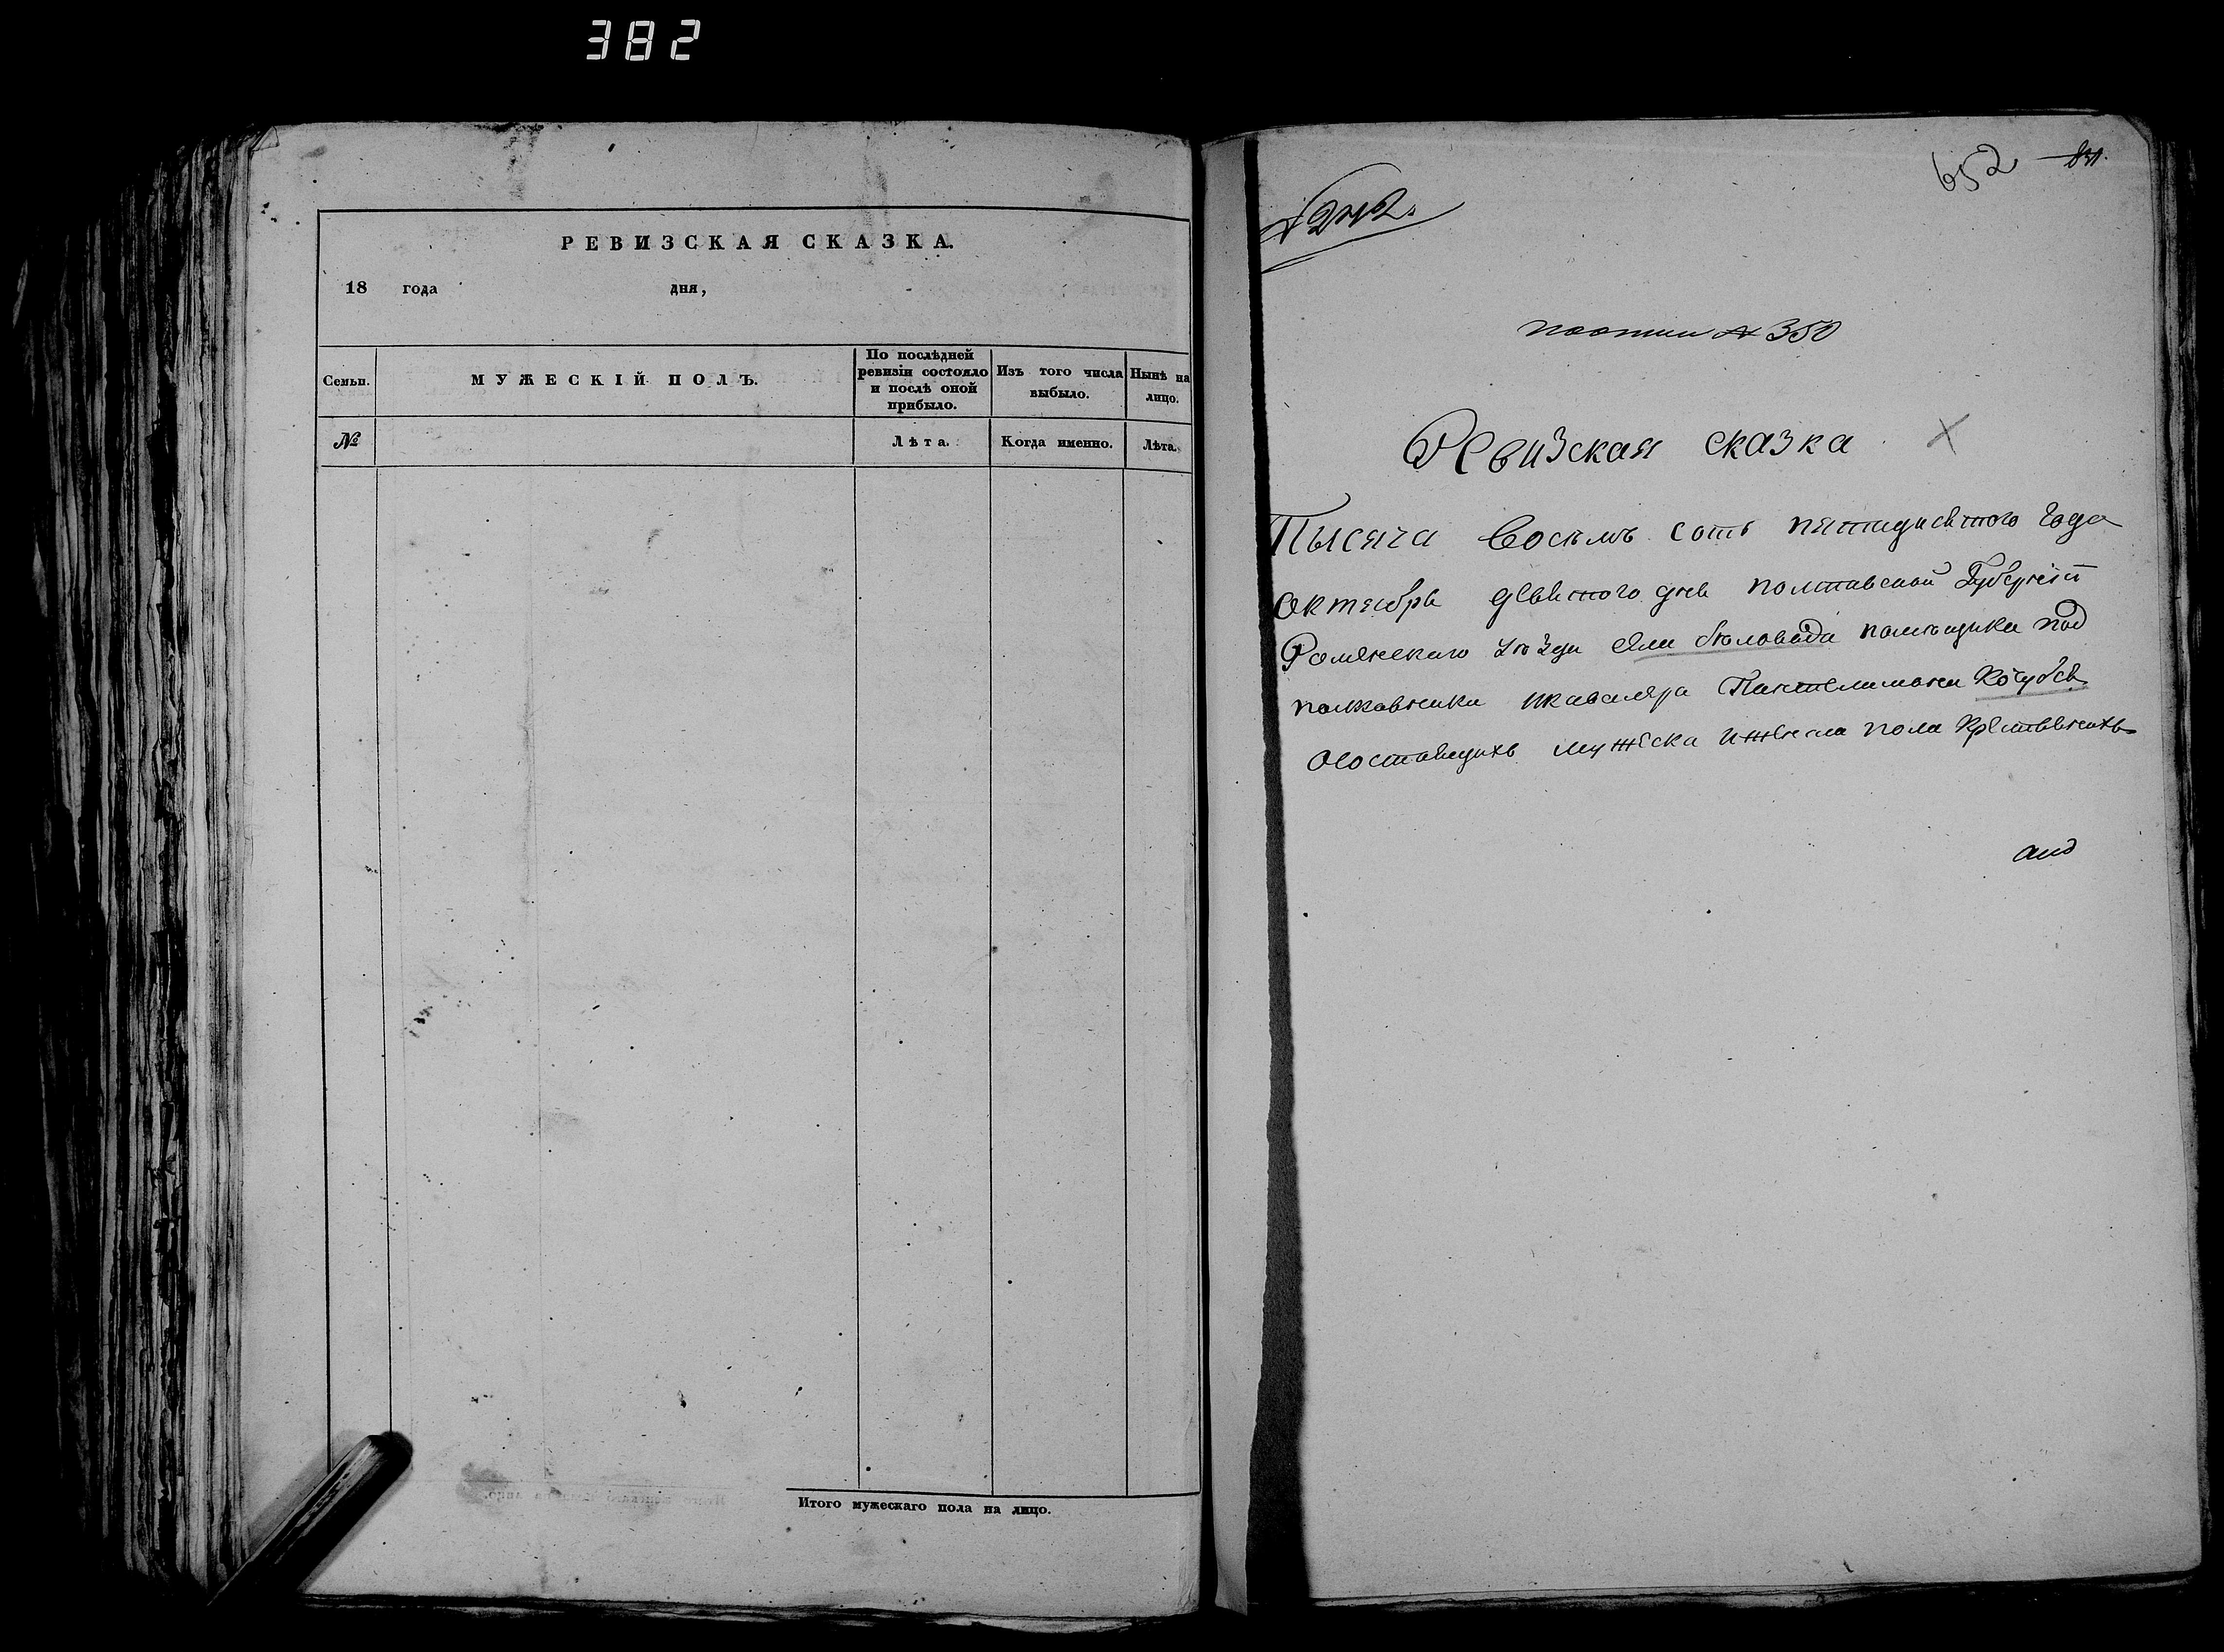 382
РЕВИЗСКАЯ СКАЗКА.
18 года дня,
Семьи.
МУЖЕСКІЙ ПОЛЪ.
По послѣдней ревизіи состояло и послѣ оной прибыло.
Изъ того числа выбыло.
Нынѣ на лицо.
№
Лѣта.
Когда именно.
Лѣта.
Итого мужескаго пола на лицо.
652
по описи № 350
Ревизская сказка
Тысяча восемь сотъ пятидесятого года
Октября девятого дня полтавской Губерніи
Роменского уѣзда села бѣловода помѣщика под
полковника и кавалера Пантелимона Кочубея
О состоящихъ мужеска и женска пола крестьянахъ